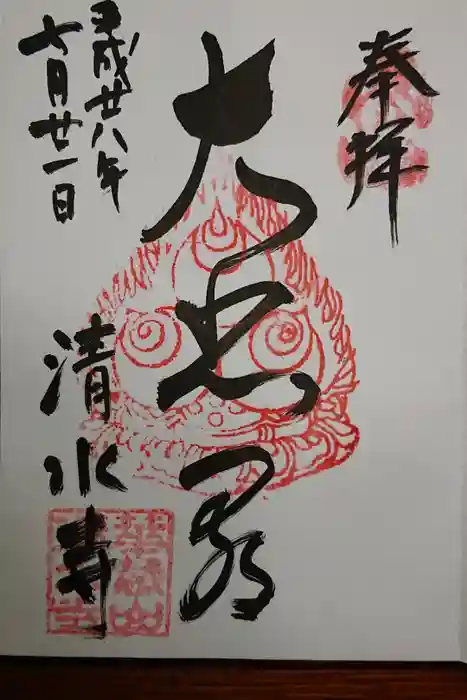 奉拝
大悲閣
平成廿八年
七月廿一日
清水寺